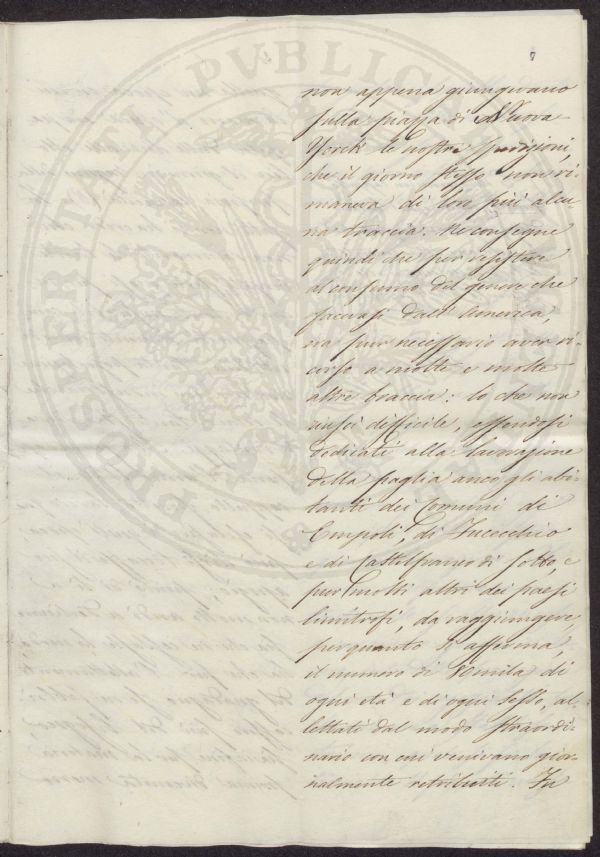 7
non appena giungevano
sulla piazza di Nuova
Yorck le nostre spedizioni,
che il giorno stesso non ri-
maneva di lor più alcu
na traccia. Ne consegue
quindi che per resistere
al consumo del genere che
facevasi dall'America,
era pur necessario aver ri-
corso a molte e molte
altre braccia: lo che non
riuscì difficile, essendosi
dedicati alla lavorazione
della paglia anco gli abi-
tanti dei comuni di
Empoli, di Fucecchio
e di Castelfranco di Sotto, e
pur molti altri dei paesi
limitrofi, da raggiungere,
per quanto si afferma,
il numero di mila di
ogni età e di ogni sesso, al-
lettati dal modo straordi-
nario con cui venivano gior-
nalmente retribuiti. In
PROSPERITATI PVBLICAE